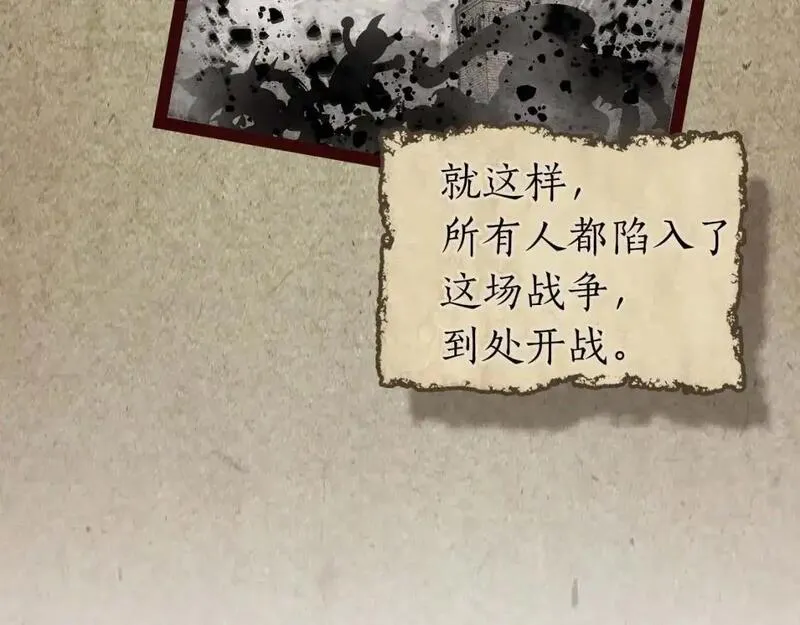 就这样，
所有人都陷入了
这场战争，
到处开战。